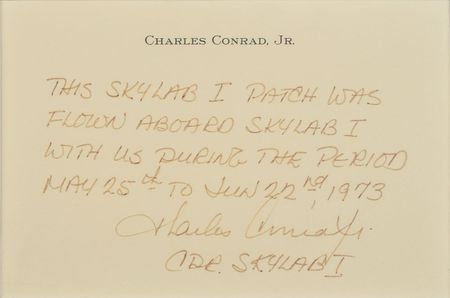 CHARLES CONRAD, JR.
THIS SKYLAB I PATCH WAS
FLOWN ABOARD SKYLAB I
WITH US DURING THE PERIOD
MAY 25th TO JUN 22nd, 1973
Charles Conrad Jr.
CDR. SKYLAB I